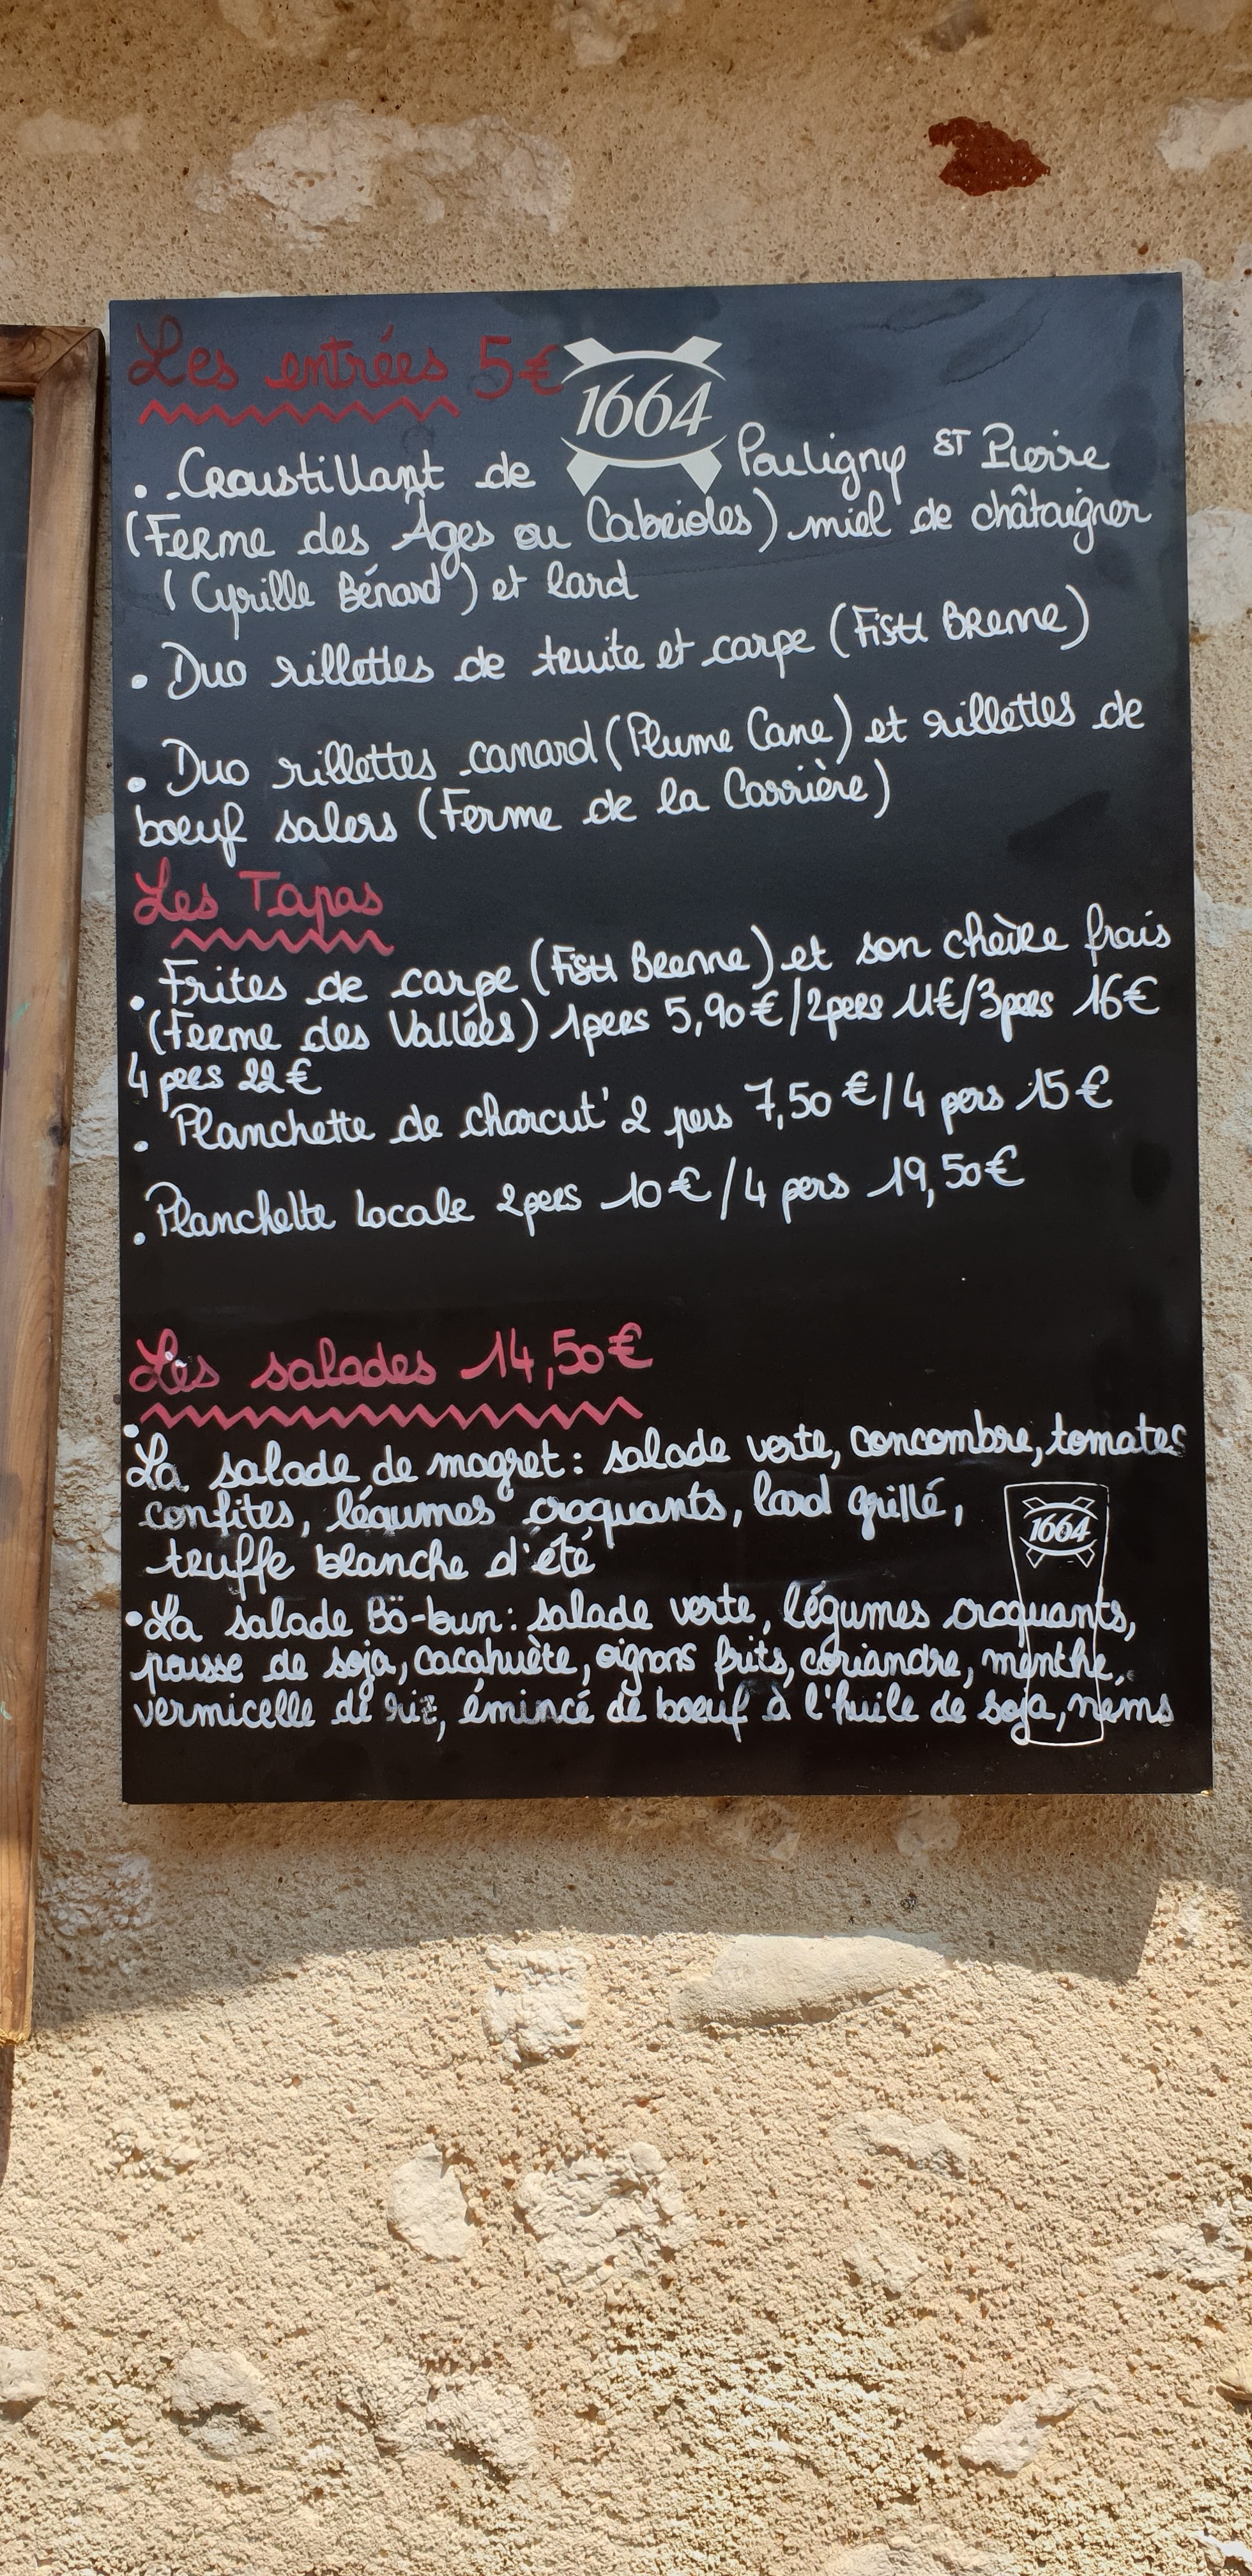 Les entrées 5€
1664
. Croustillant de Pouligny ST Pierre
(Ferme des Âges ou Cabrioles) miel de châtaigner
(Cyrille Bénard) et lard
. Duo rillettes de truite et carpe (Fish Brenne)
. Duo rillettes canard (Plume Cane) et rillettes de
boeuf salers (Ferme de la Carrière)
Les Tapas
. Frites de carpe (Fish Brenne) et son chèvre frais
(Ferme des Vallées) 1pers 5,90€/2pers 11€/3pers 16€
4 pers 22€
. Planchette de charcut' 2 pers 7,50€/4 pers 15€
. Planchette Locale 2pers 10€/4 pers 19,50€
Les salades 14,50€
• La salade de magret : salade verte, concombre, tomates
confites, légumes croquants, lard grillé,
truffe blanche d'été
1664
• La salade Bö-bun : salade verte, légumes croquants,
pousse de soja, cacahuète, oignons frits, coriandre, menthe,
vermicelle de riz, émincé de boeuf à l'huile de soja, nems